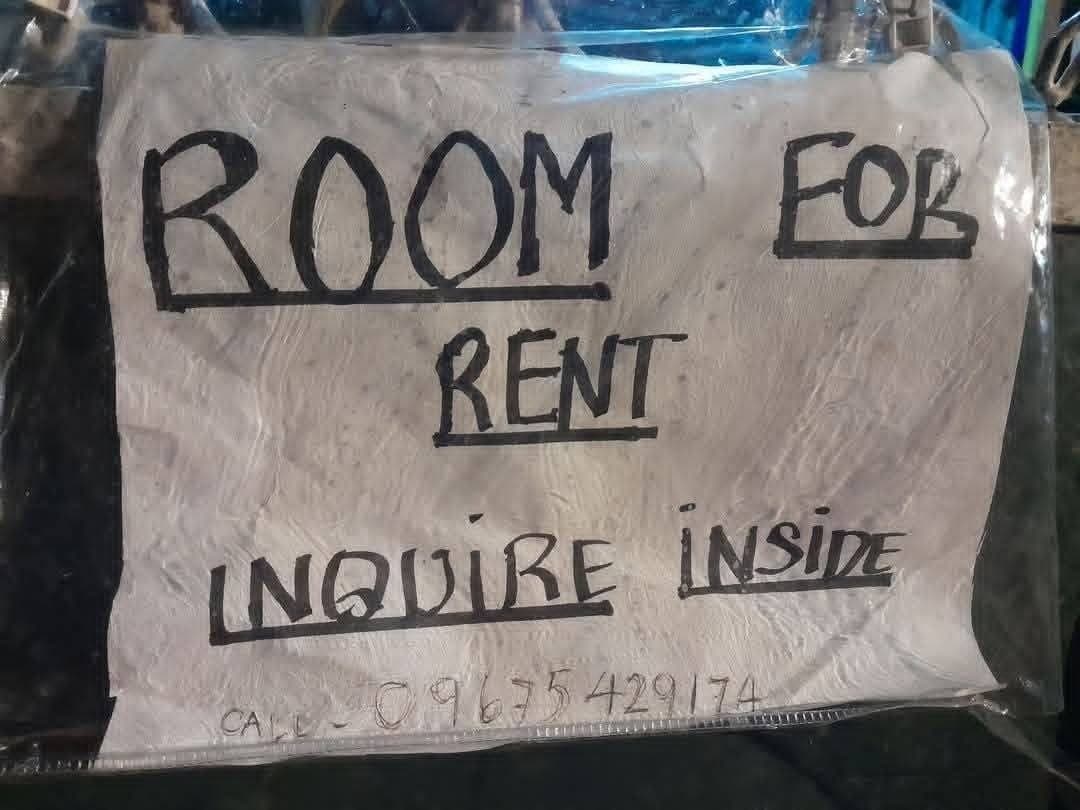 ROOM FOR
RENT
INQUIRE INSIDE
CALL - 09675429174